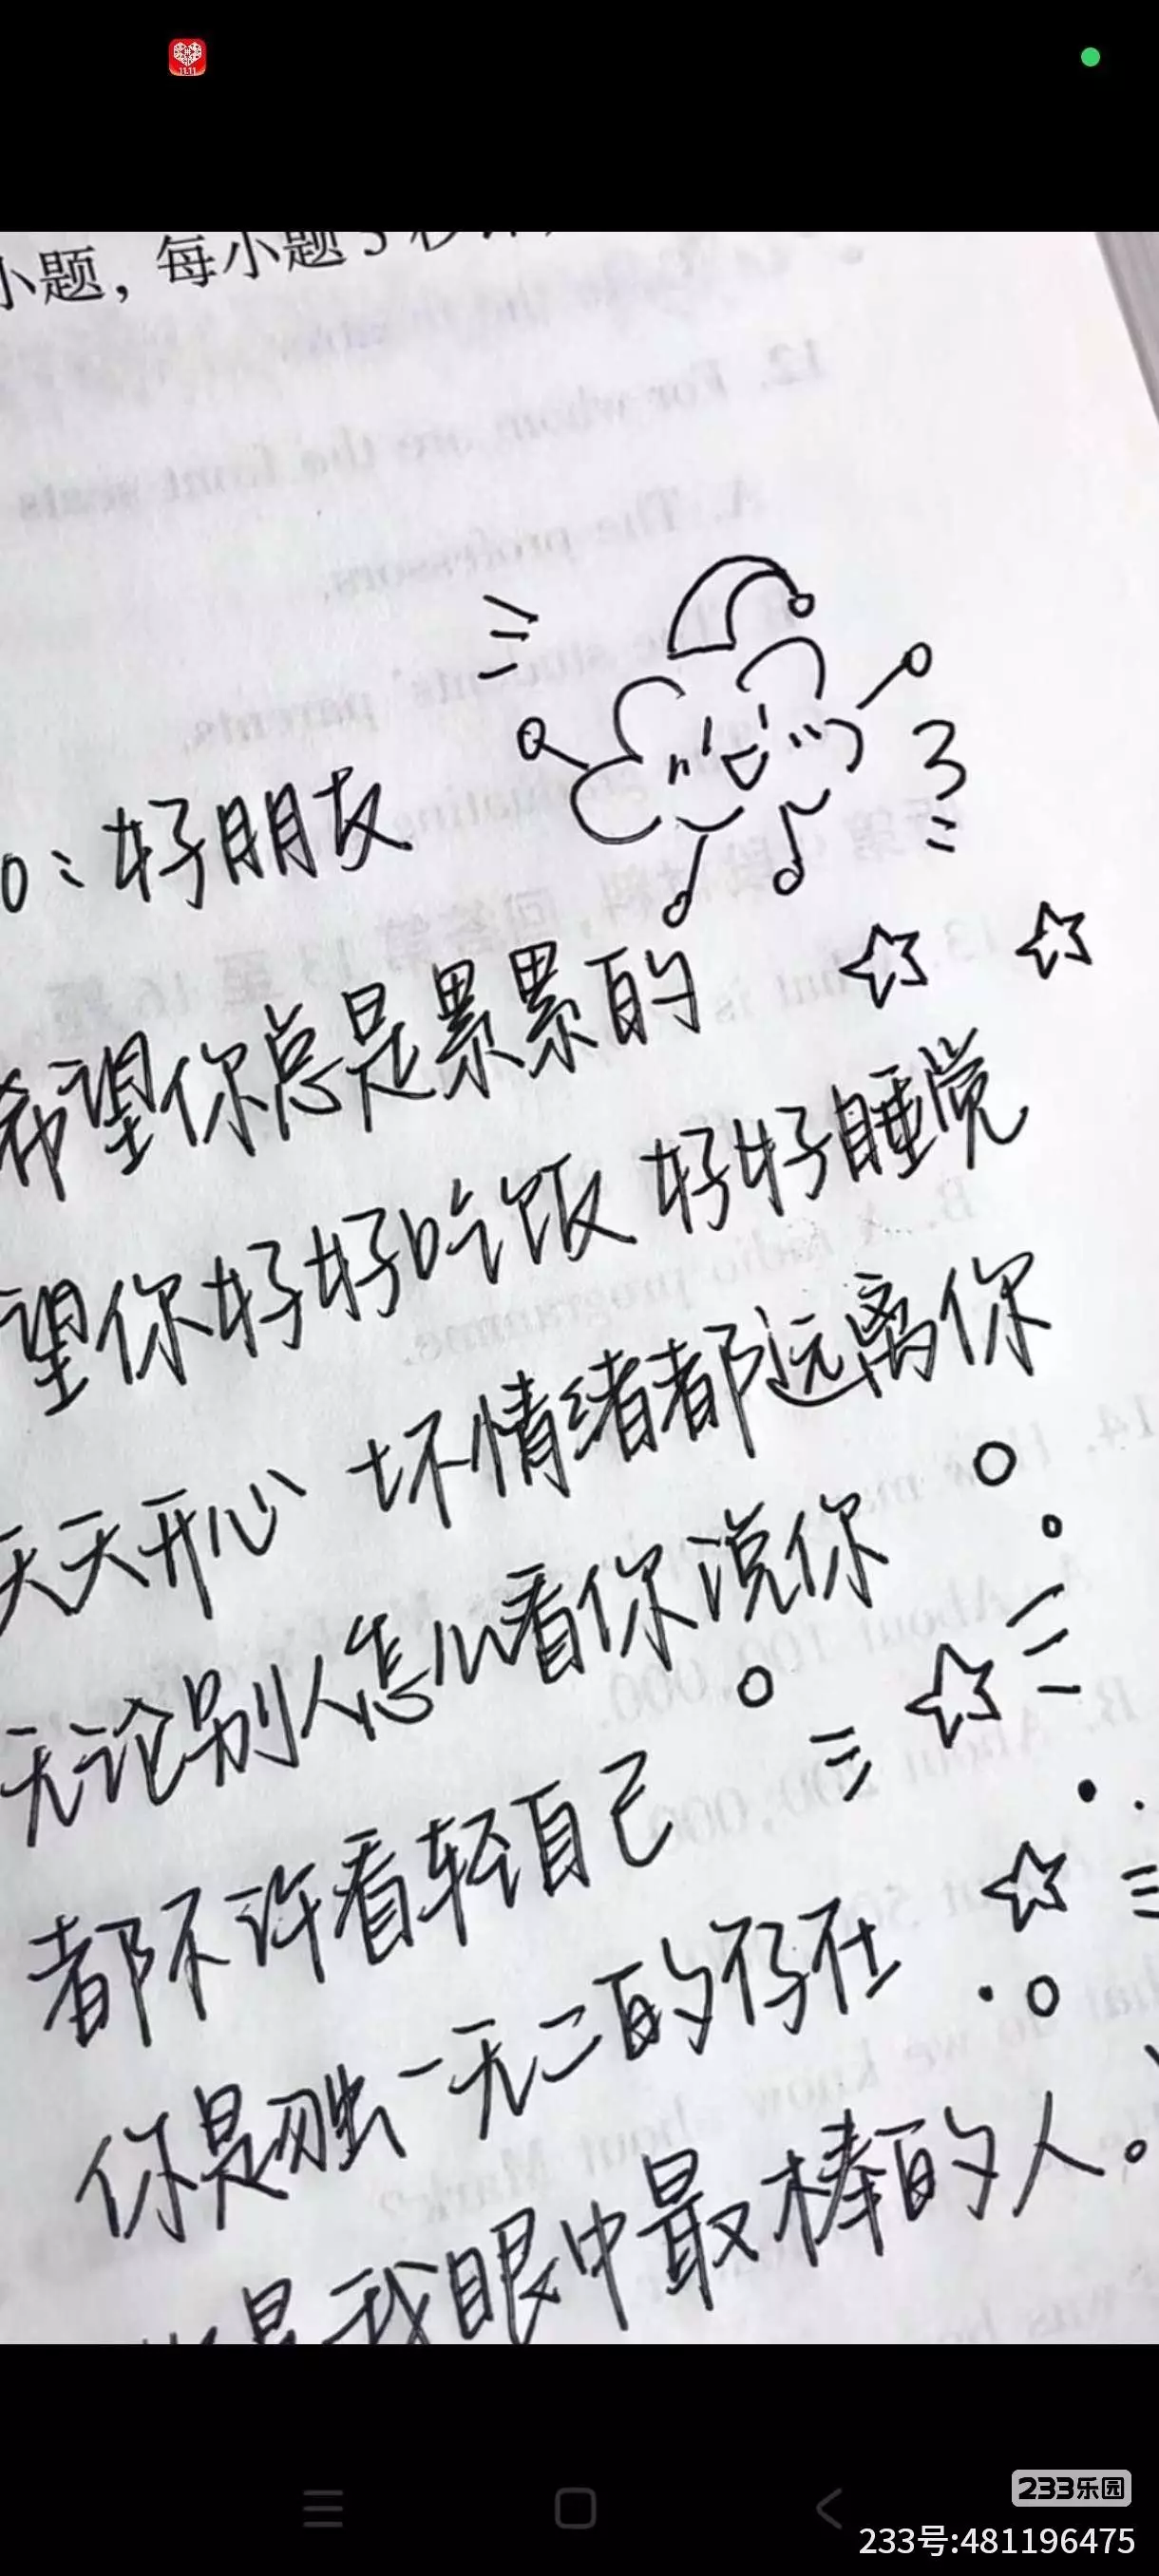 小题，每小题5秒
o：好朋友
希望你总是累累的
望你好好吃饭 好好睡觉
天天开心 坏情绪都远离你
无论别人怎么看你说你
都不许看轻自己
你是独一无二的存在
是我眼中最棒的人。
12. For whom are the front seats
A. The professors.
students' parents.
13.
B. A radio programme.
14.
A. About 100,000.
B. About 200,000.
do we know about Mark?
233乐园
233号:481196475